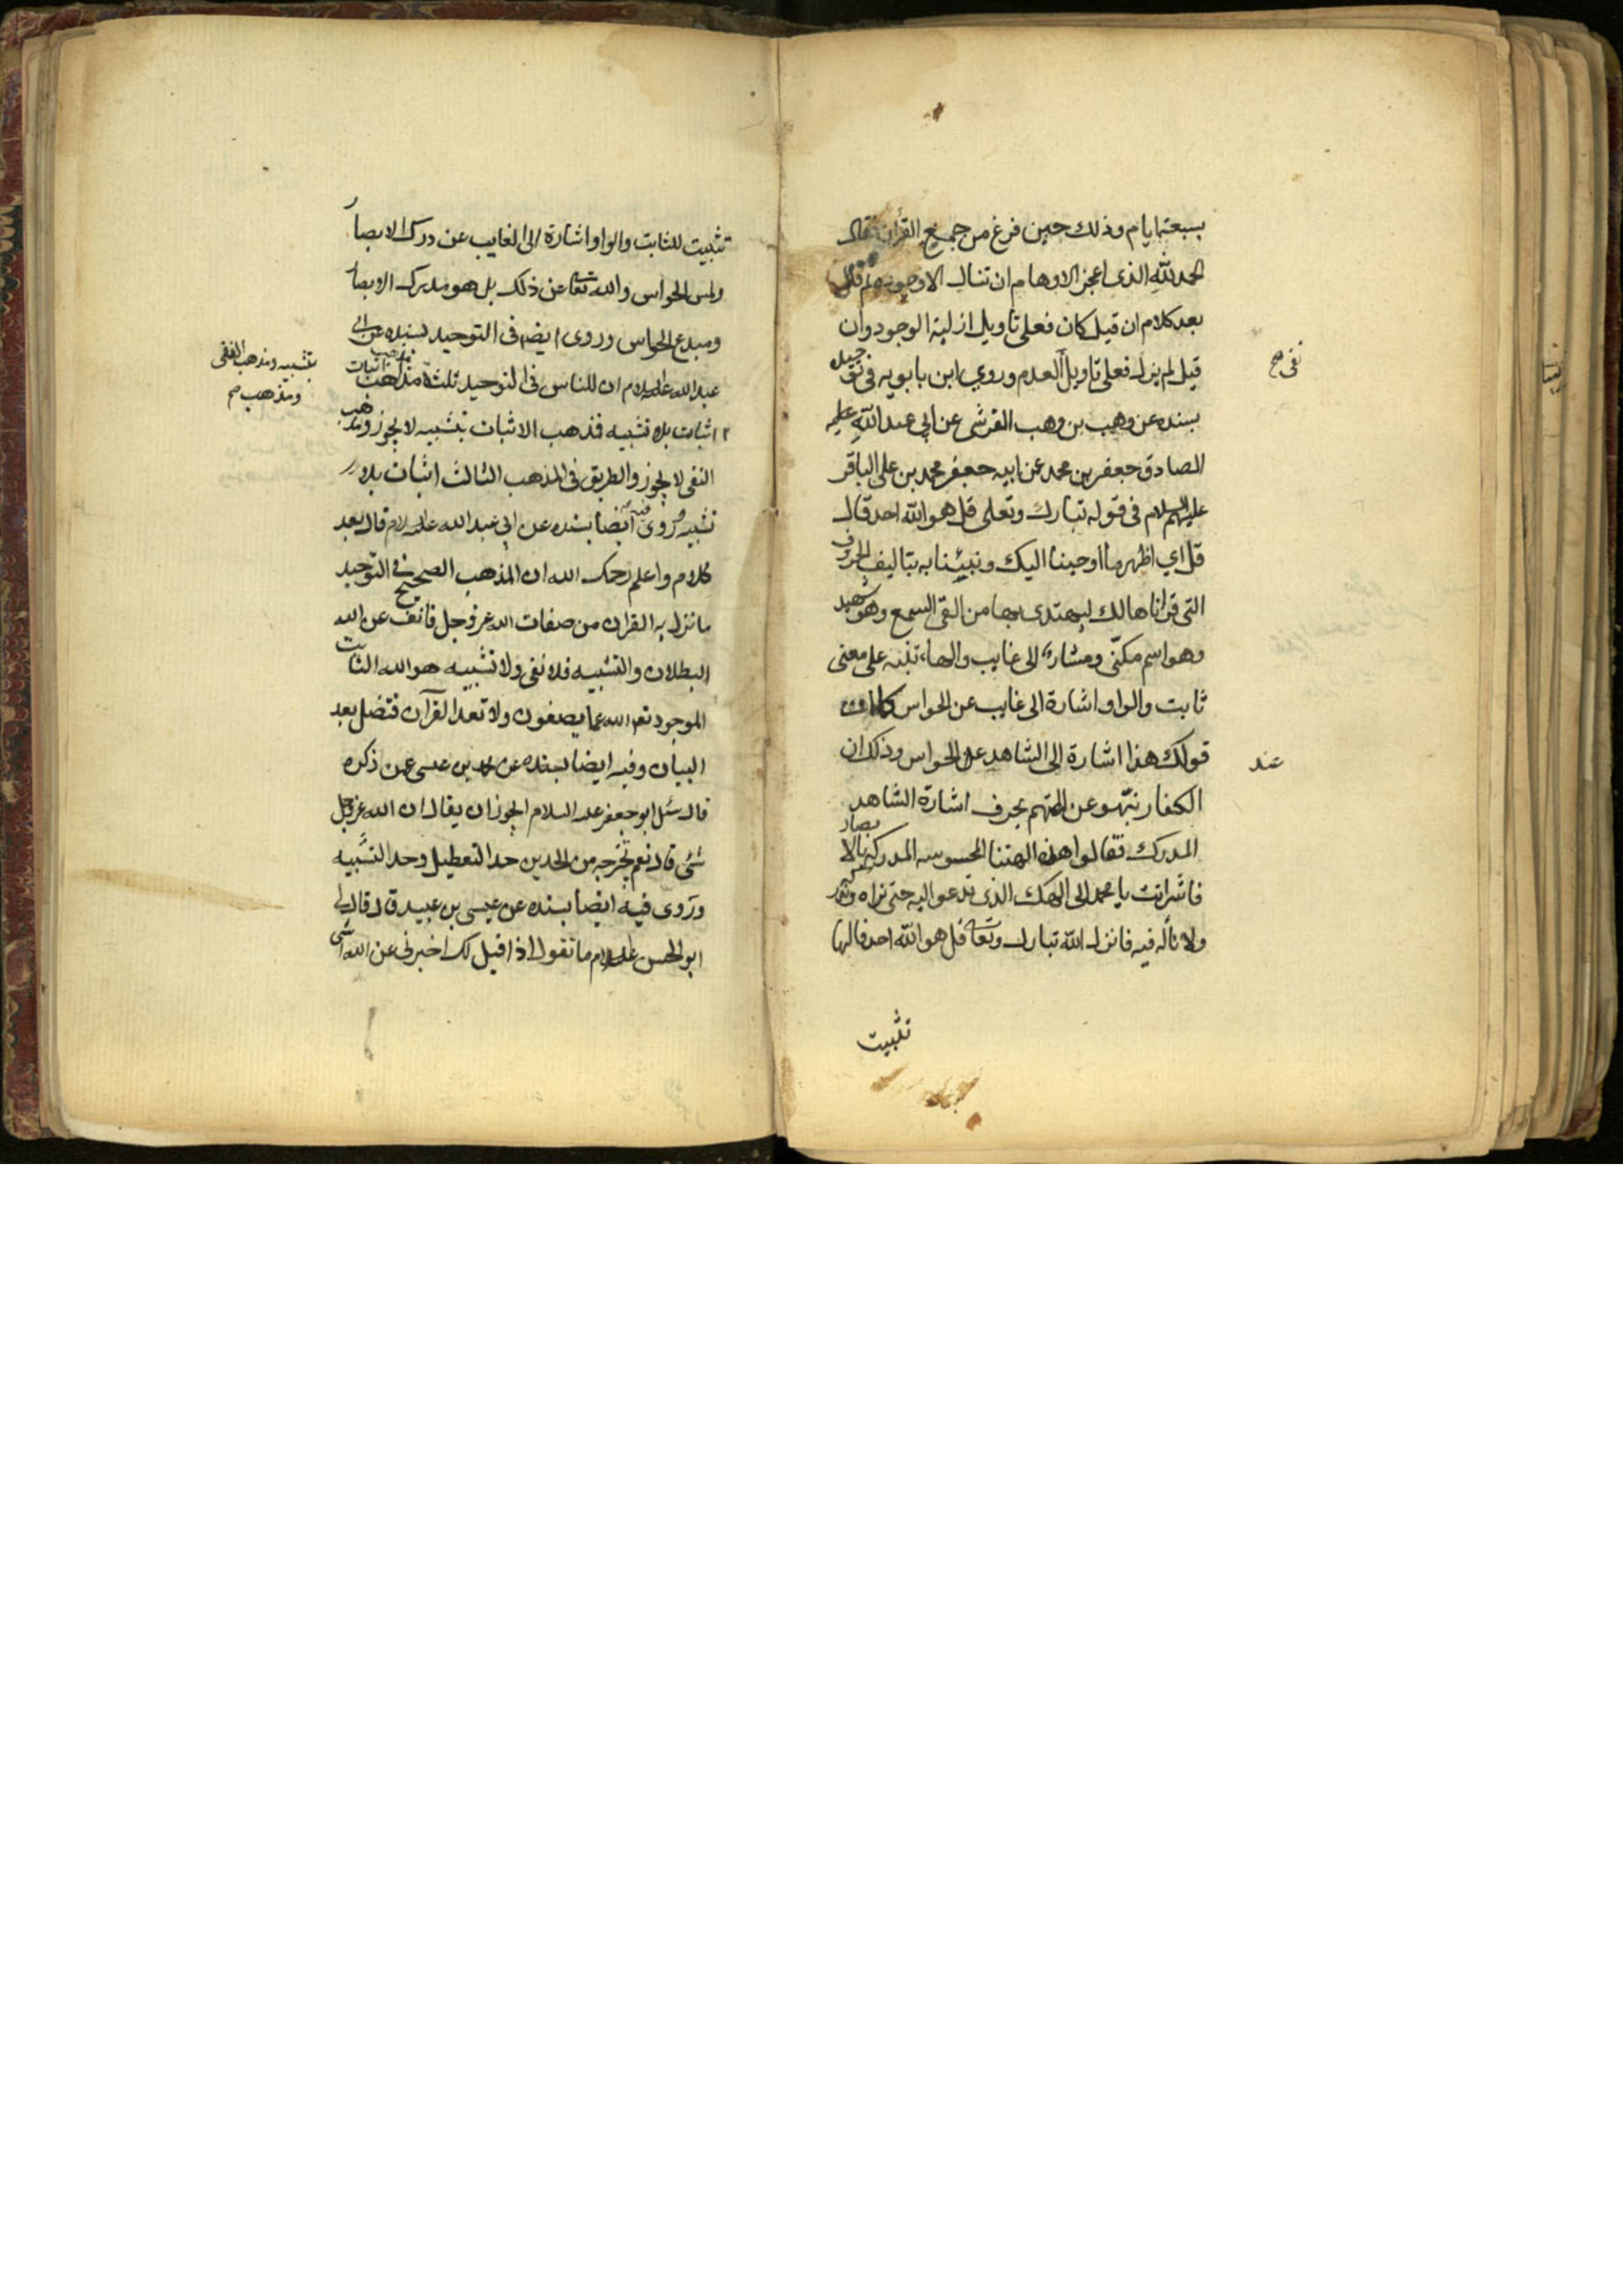 بسبعة ايام وذلك حين فرغ من جميع القرآن فقال
الحمد لله الذي اعجز الاوهام ان تنال الا وجوده ثم قال
بعد كلام ان قيل كان فعلى تاويل ازلية الوجود وان
قيل لم يزل فعلى تاويل العدم وروى ابن بابويه في توحيده
نفى صح
بسنده عن وهب بن وهب القرشي عن ابي عبد الله
الصادق جعفر بن محمد عن ابيه محمد بن علي الباقر
عليهم السلام في قوله تبارك وتعلى قل هو الله احد قال
قل اي اظهر ما اوحينا اليك ونبيئنا به بتاليف الحروف
التى قراناها لك ليهتدى بها من القى السمع وهو شهيد
وهو اسم مكنّى ومشار الى غايب والهاء تنبه على معنى
ثابت والواو اشارة الى غايب عن الحواس كما ان
قولك هذا اشارة الى الشاهد عند الحواس وذلك ان
عند
الكفار نبّهو عن الهتهم بحرف اشارة الشاهد
المدرك فقالوا هذه الهتنا المحسوسه المدركة بالابصار
فاشر انت يا محمد الى الهك الذى تدعو اليه حتى نراه وندركه
ولا ناله فيه فانزل الله تبارك وتعا قل هو الله احد فالها
تثبيت
تثبيت للثابت والواو اشارة الى الغايب عن درك الابصار
ولمس الحواس والله تعا عن ذلك بل هو مدرك الابصار
ومبدع الحواس وروى ايضا فى التوحيد بسنده عن ابي
عبد الله عليه السلام ان للناس فى التوحيد ثلثة مذاهب اثبات
بتشبيه ومذهب النفى
ومذهب صح
اثبات بلا تشبيه فمذهب الاثبات بتشبيه لا يجوز ومذهب
النفى لا يجوز والطريق فى المذهب الثالث اثبات بلا
تشبيه وروى فيه ايضا بسنده عن ابى عبد الله عليه السلام قال بعد
كلام واعلم رحمك الله ان المذهب الصحيح فى التوحيد
ما نزل به القران من صفات الله عز وجل فانف عن الله
البطلان والتشبيه فلا نفى ولا تشبيه هو الله الثابت
الموجود تعا الله عما يصفون ولا تعد القرآن فتضل بعد
البيان وفيه ايضا بسنده عن محمد بن عيسى عمن ذكره
قال سئل ابو جعفر عليه السلام ايجوز ان يقال ان الله عز وجل
شئ قال نعم تخرجه من الحدين حد التعطيل وحد التشبيه
وروى فيه ايضا بسنده عن عيسى بن عبيد قال قال لى
ابو الحسن عليه السلام ما تقول اذا قيل لك اخبرنى عن الله اشئ